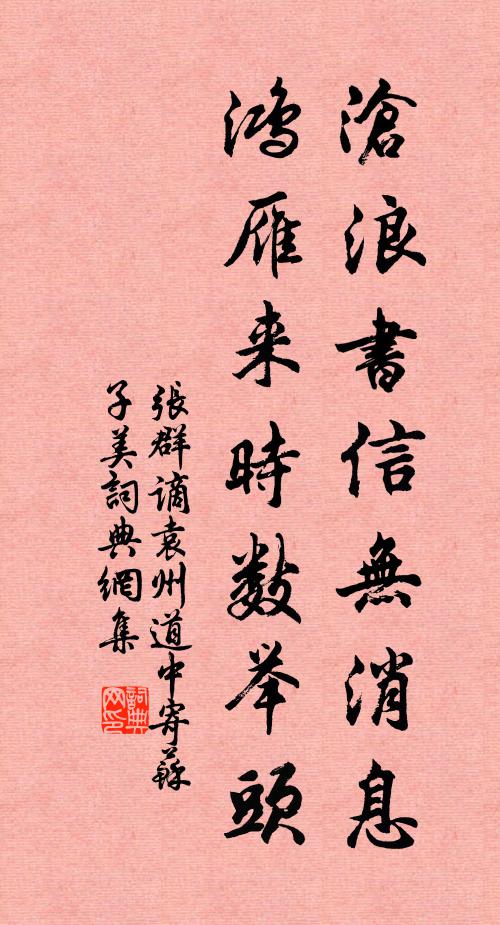 滄浪書信無消息
鴻雁来時数举頭
張群謫袁州道中寄蘇
子美詞典網集
詞典
网印